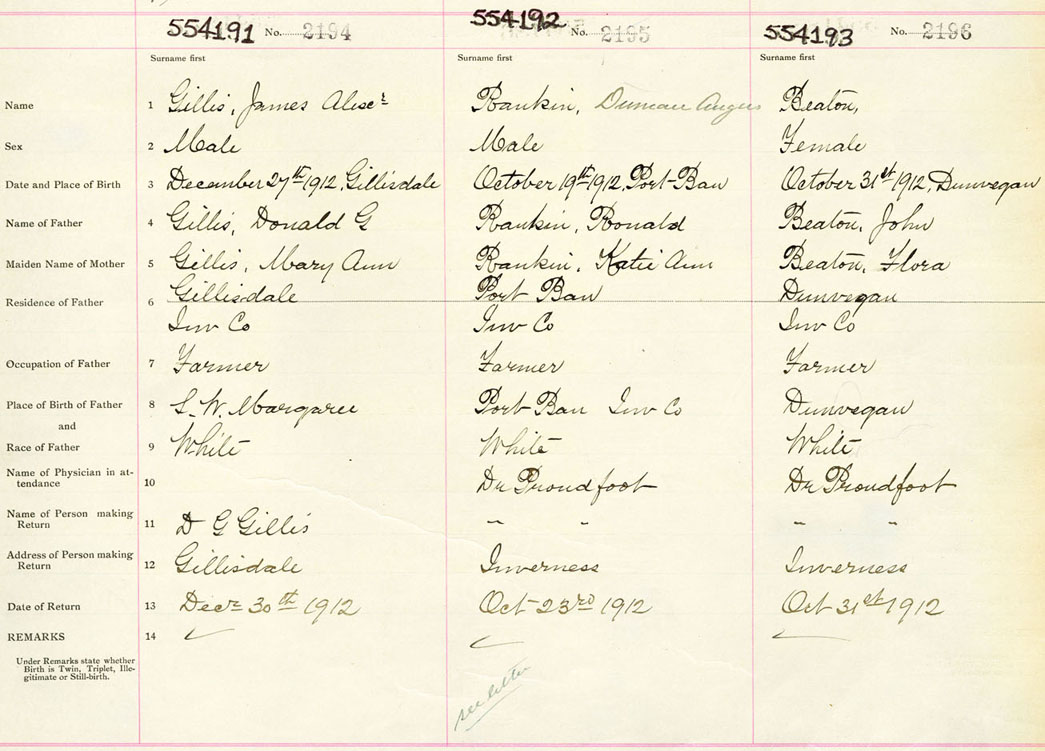 554191 No. 2194 554192 No. 2195 554193 No. 2196
Surname first Surname first Surname first
Name 1 Gillis, James Alexr Rankin, Duncan Angus Beaton,
Sex 2 Male Male Female
Date and Place of Birth 3 December 27th 1912, Gillisdale October 19th 1912, Port-Ban October 31st 1912, Dunvegan
Name of Father 4 Gillis, Donald G Rankin, Ronald Beaton, John
Maiden Name of Mother 5 Gillis, Mary Ann Rankin, Katie Ann Beaton, Flora
Residence of Father 6 Gillisdale Port Ban Dunvegan
Inv Co Inv Co Inv Co
Occupation of Father 7 Farmer Farmer Farmer
Place of Birth of Father 8 S. W. Margaree Port Ban Inv Co Dunvegan
and
Race of Father 9 White White White
Name of Physician in at-
tendance 10 Dr Proudfoot Dr Proudfoot
Name of Person making
Return 11 D G Gillis " " " "
Address of Person making
Return 12 Gillisdale Inverness Inverness
Date of Return 13 Decr 30th 1912 Oct 23rd 1912 Oct 31st 1912
REMARKS 14
Under Remarks state whether
Birth is Twin, Triplet, Ille-
gitimate or Still-birth.
see letter